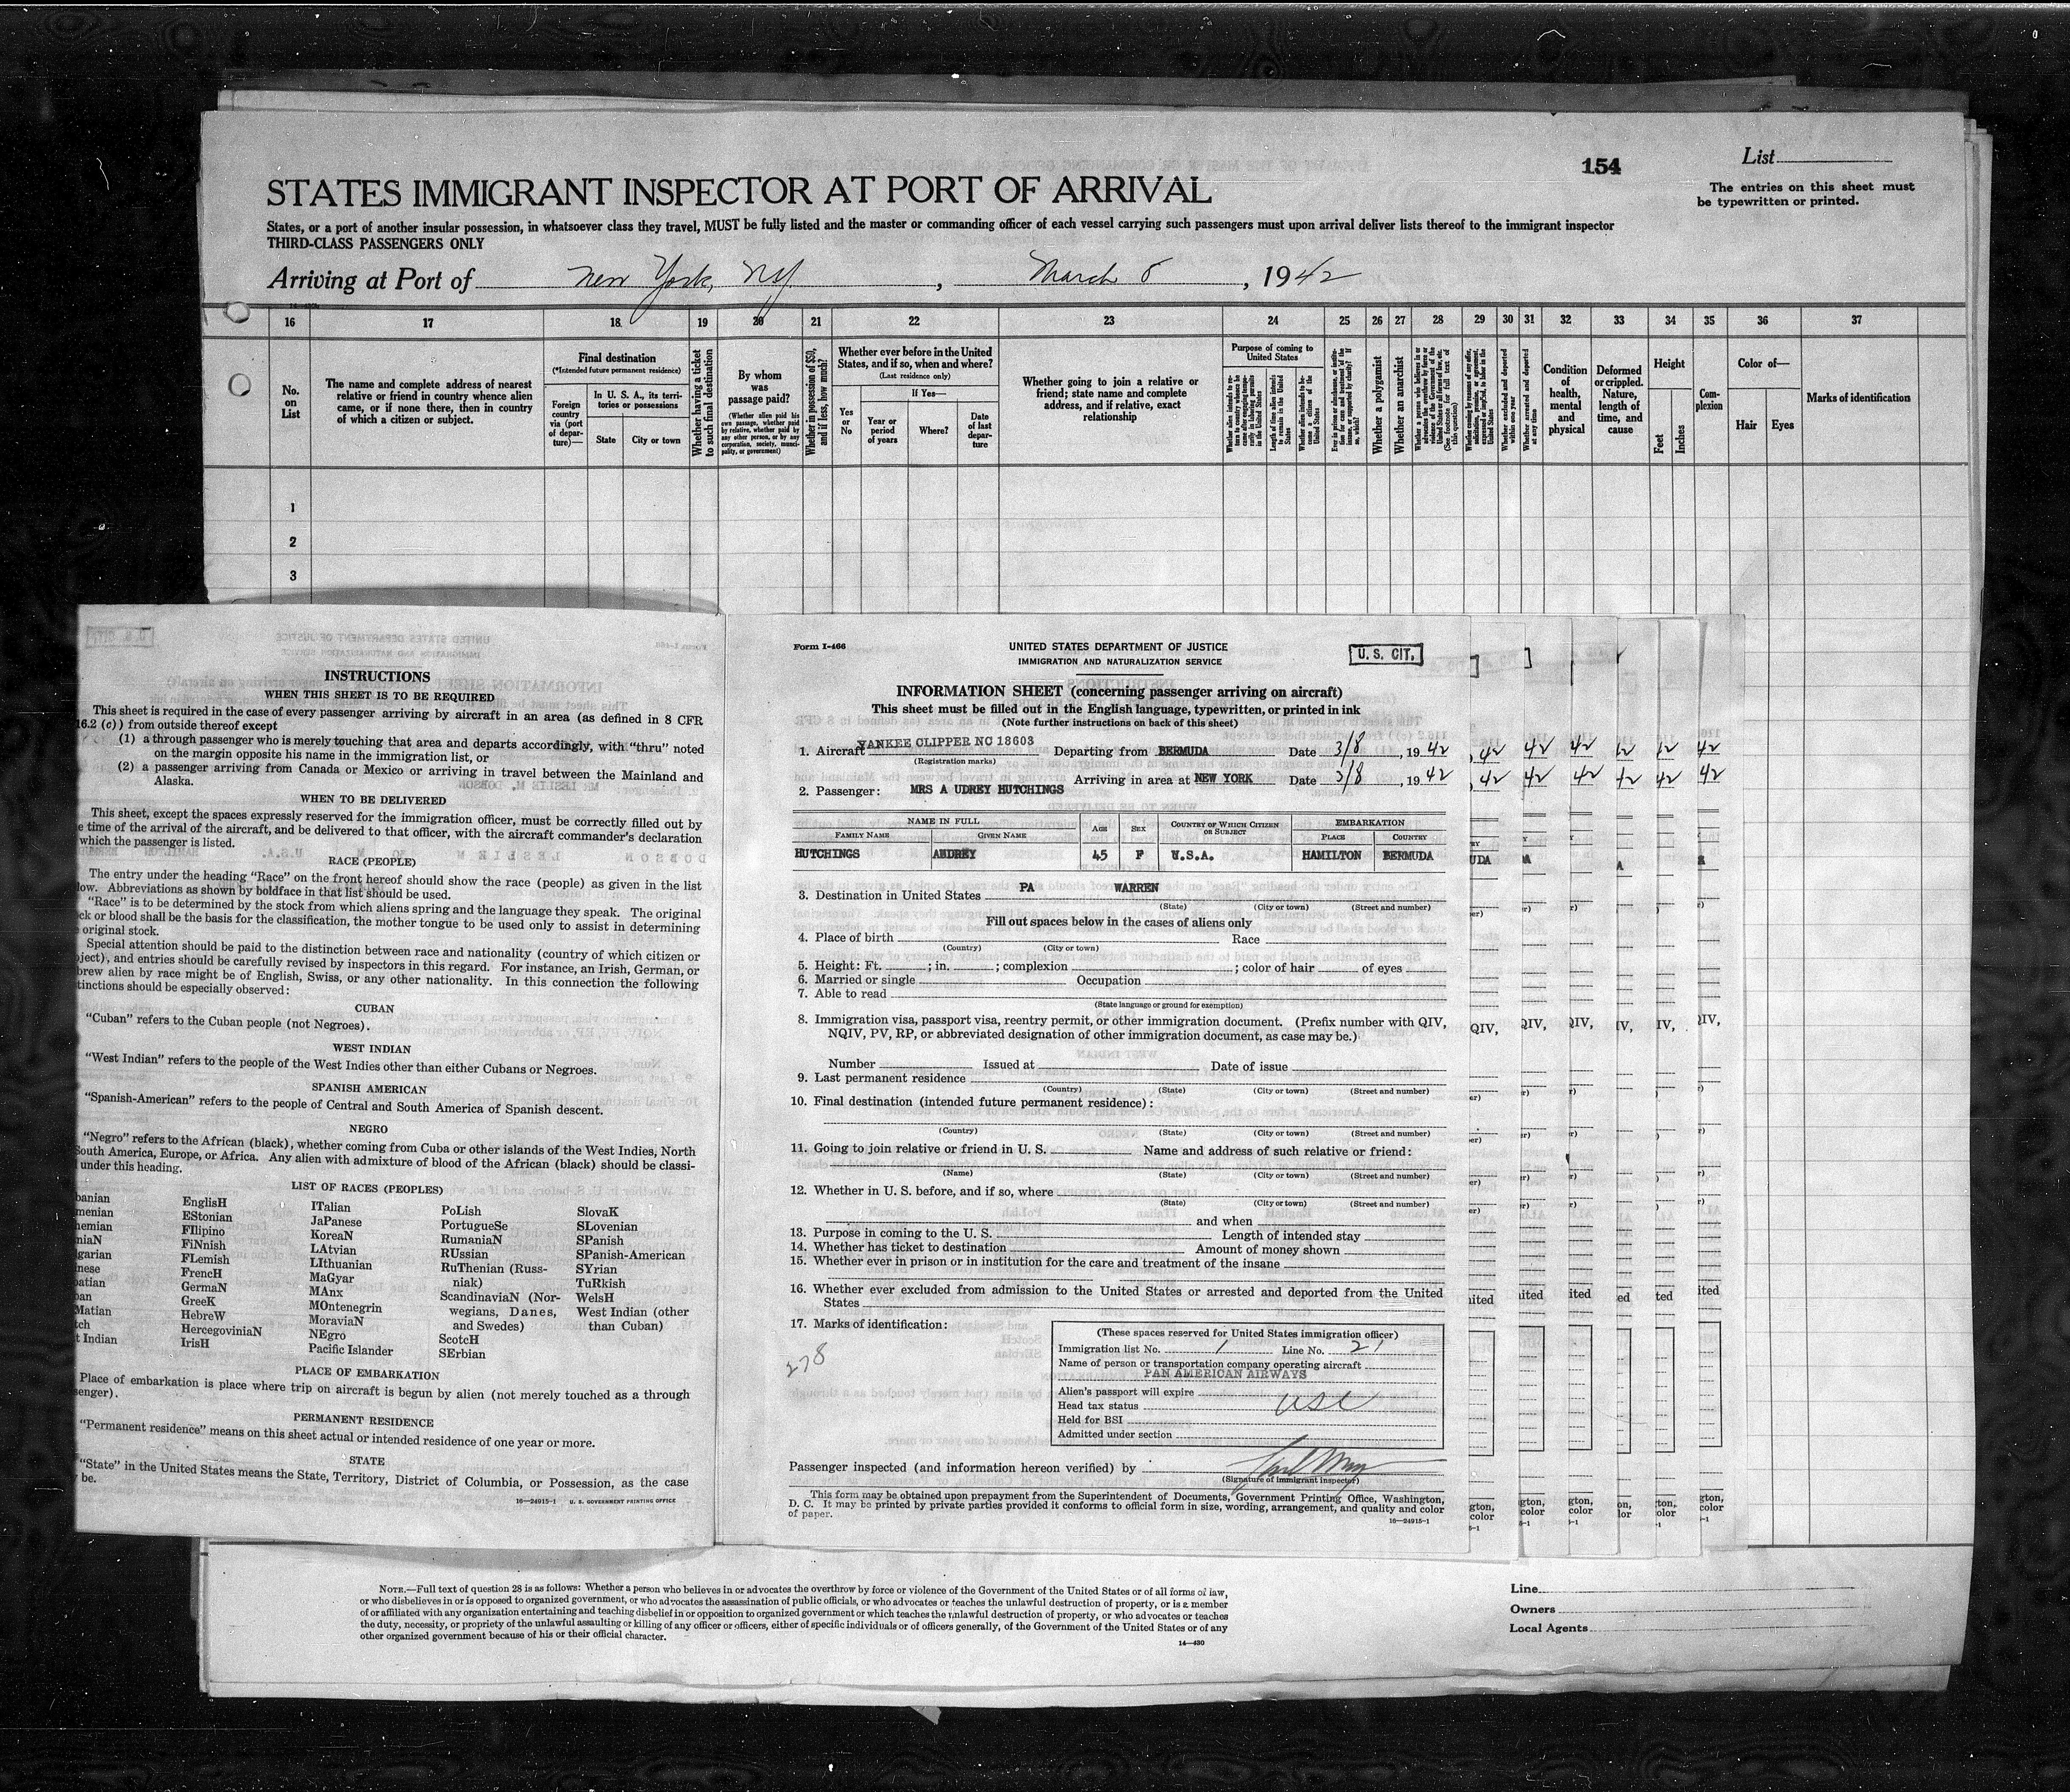 154
List
The entries on this sheet must
be typewritten or printed.
STATES IMMIGRANT INSPECTOR AT PORT OF ARRIVAL
States, or a port of another insular possession, in whatsoever class they travel, MUST be fully listed and the master or commanding officer of each vessel carrying such passengers must upon arrival deliver lists thereof to the immigrant inspector
THIRD-CLASS PASSENGERS ONLY
Arriving at Port of New York, NY, March 8, 1942
16 17 18 19 20 21 22 23 24 25 26 27 28 29 30 31 32 33 34 35 36 37
No. on List
The name and complete address of nearest
relative or friend in country whence alien
came, or if none there, then in country
of which a citizen or subject.
Final destination
(*Intended future permanent residence)
Foreign country via (port of departure)—
In U. S. A., its territories or possessions
State
City or town
Whether having a ticket to such final destination
By whom was passage paid?
(Whether alien paid his own passage, whether paid by relative, whether paid by any other person, or by any corporation, society, municipality, or government)
Whether in possession of $50, and if less, how much?
Whether ever before in the United
States, and if so, when and where?
(Last residence only)
Yes or No
If Yes—
Year or period of years
Where?
Date of last departure
Whether going to join a relative or
friend; state name and complete
address, and if relative, exact
relationship
Purpose of coming to United States
Length of time alien intends to remain in the United States
Whether alien intends to become a citizen of the United States
Whether a polygamist
Whether an anarchist
Condition of health, mental and physical
Deformed or crippled. Nature, length of time, and cause
Height
Feet
Inches
Complexion
Color of—
Hair
Eyes
Marks of identification
1
2
3
INSTRUCTIONS
WHEN THIS SHEET IS TO BE REQUIRED
This sheet is required in the case of every passenger arriving by aircraft in an area (as defined in 8 CFR
16.2 (c)) from outside thereof except
(1) a through passenger who is merely touching that area and departs accordingly, with "thru" noted
on the margin opposite his name in the immigration list, or
(2) a passenger arriving from Canada or Mexico or arriving in travel between the Mainland and
Alaska.
WHEN TO BE DELIVERED
This sheet, except the spaces expressly reserved for the immigration officer, must be correctly filled out by
e time of the arrival of the aircraft, and be delivered to that officer, with the aircraft commander's declaration
which the passenger is listed.
RACE (PEOPLE)
The entry under the heading "Race" on the front hereof should show the race (people) as given in the list
low. Abbreviations as shown by boldface in that list should be used.
"Race" is to be determined by the stock from which aliens spring and the language they speak. The original
ck or blood shall be the basis for the classification, the mother tongue to be used only to assist in determining
original stock.
Special attention should be paid to the distinction between race and nationality (country of which citizen or
ject), and entries should be carefully revised by inspectors in this regard. For instance, an Irish, German, or
brew alien by race might be of English, Swiss, or any other nationality. In this connection the following
tinctions should be especially observed:
CUBAN
"Cuban" refers to the Cuban people (not Negroes).
WEST INDIAN
"West Indian" refers to the people of the West Indies other than either Cubans or Negroes.
SPANISH AMERICAN
"Spanish-American" refers to the people of Central and South America of Spanish descent.
NEGRO
"Negro" refers to the African (black), whether coming from Cuba or other islands of the West Indies, North
South America, Europe, or Africa. Any alien with admixture of blood of the African (black) should be classi-
under this heading.
LIST OF RACES (PEOPLES)
banian EnglisH ITalian PoLish SlovaK
menian EStonian JaPanese PortugueSe SLovenian
hemian FIlipino KoreaN RumaniaN SPanish
niaN FiNnish LAtvian RUssian SPanish-American
garian FLemish LIthuanian RuThenian (Russ- SYrian
nese FrencH MaGyar niak) TuRkish
patian GermaN MAnx ScandinaviaN (Nor- WelsH
an GreeK MOntenegrin wegians, Danes, West Indian (other
Matian HebreW MoraviaN and Swedes) than Cuban)
tch HercegoviniaN NEgro ScotcH
t Indian IrisH Pacific Islander SErbian
PLACE OF EMBARKATION
Place of embarkation is place where trip on aircraft is begun by alien (not merely touched as a through
senger).
PERMANENT RESIDENCE
"Permanent residence" means on this sheet actual or intended residence of one year or more.
STATE
"State" in the United States means the State, Territory, District of Columbia, or Possession, as the case
be.
16—24915-1 U. S. GOVERNMENT PRINTING OFFICE
Form I-466
UNITED STATES DEPARTMENT OF JUSTICE
IMMIGRATION AND NATURALIZATION SERVICE
U. S. CIT.
INFORMATION SHEET (concerning passenger arriving on aircraft)
This sheet must be filled out in the English language, typewritten, or printed in ink
(Note further instructions on back of this sheet)
1. Aircraft YANKEE CLIPPER NC 18603 Departing from BERMUDA Date 3/8, 1942
(Registration marks)
Arriving in area at NEW YORK Date 3/8, 1942
2. Passenger: MRS A UDREY HUTCHINGS
NAME IN FULL AGE SEX COUNTRY OF WHICH CITIZEN OR SUBJECT EMBARKATION
FAMILY NAME GIVEN NAME PLACE COUNTRY
HUTCHINGS AUDREY 45 F U.S.A. HAMILTON BERMUDA
3. Destination in United States PA WARREN
(State) (City or town) (Street and number)
Fill out spaces below in the cases of aliens only
4. Place of birth Race
(Country) (City or town)
5. Height: Ft. ; in. ; complexion ; color of hair of eyes
6. Married or single Occupation
7. Able to read
(State language or ground for exemption)
8. Immigration visa, passport visa, reentry permit, or other immigration document. (Prefix number with QIV,
NQIV, PV, RP, or abbreviated designation of other immigration document, as case may be.)
Number Issued at Date of issue
9. Last permanent residence
(Country) (State) (City or town) (Street and number)
10. Final destination (intended future permanent residence):
(Country) (State) (City or town) (Street and number)
11. Going to join relative or friend in U. S. Name and address of such relative or friend:
(Name) (State) (City or town) (Street and number)
12. Whether in U. S. before, and if so, where
(State) (City or town) (Street and number)
and when
13. Purpose in coming to the U. S. Length of intended stay
14. Whether has ticket to destination Amount of money shown
15. Whether ever in prison or in institution for the care and treatment of the insane
16. Whether ever excluded from admission to the United States or arrested and deported from the United
States
17. Marks of identification:
278
(These spaces reserved for United States immigration officer)
Immigration list No. 1 Line No. 21
Name of person or transportation company operating aircraft
PAN AMERICAN AIRWAYS
Alien's passport will expire
Head tax status USC
Held for BSI
Admitted under section
Passenger inspected (and information hereon verified) by
(Signature of immigrant inspector)
This form may be obtained upon prepayment from the Superintendent of Documents, Government Printing Office, Washington,
D. C. It may be printed by private parties provided it conforms to official form in size, wording, arrangement, and quality and color
of paper.
16—24915-1
NOTE.—Full text of question 28 is as follows: Whether a person who believes in or advocates the overthrow by force or violence of the Government of the United States or of all forms of law,
or who disbelieves in or is opposed to organized government, or who advocates the assassination of public officials, or who advocates or teaches the unlawful destruction of property, or is a member
of or affiliated with any organization entertaining and teaching disbelief in or opposition to organized government or which teaches the unlawful destruction of property, or who advocates or teaches
the duty, necessity, or propriety of the unlawful assaulting or killing of any officer or officers, either of specific individuals or of officers generally, of the Government of the United States or of any
other organized government because of his or their official character.
14—430
Line
Owners
Local Agents